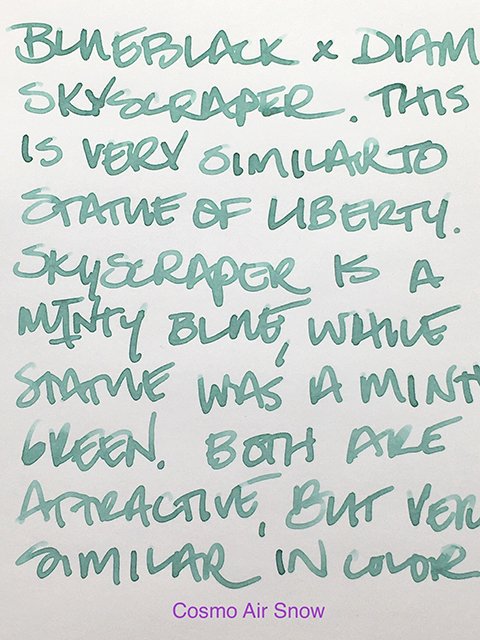 BLUEBLACK x DIAM
SKYSCRAPER. THIS
IS VERY SIMILAR TO
STATUE OF LIBERTY.
SKYSCRAPER IS A
MINTY BLUE, WHILE
STATUE WAS A MINTY
GREEN. BOTH ARE
ATTRACTIVE, BUT VERY
SIMILAR IN COLOR
Cosmo Air Snow